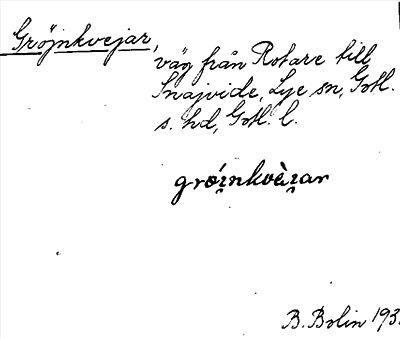 Gröjnkvejar,
väg från Rotare till
Snajvide, Lye sn, Gotl.
s. hd, Gotl. l.
grǿi̯nkvèi̯ar
B. Bolin 193